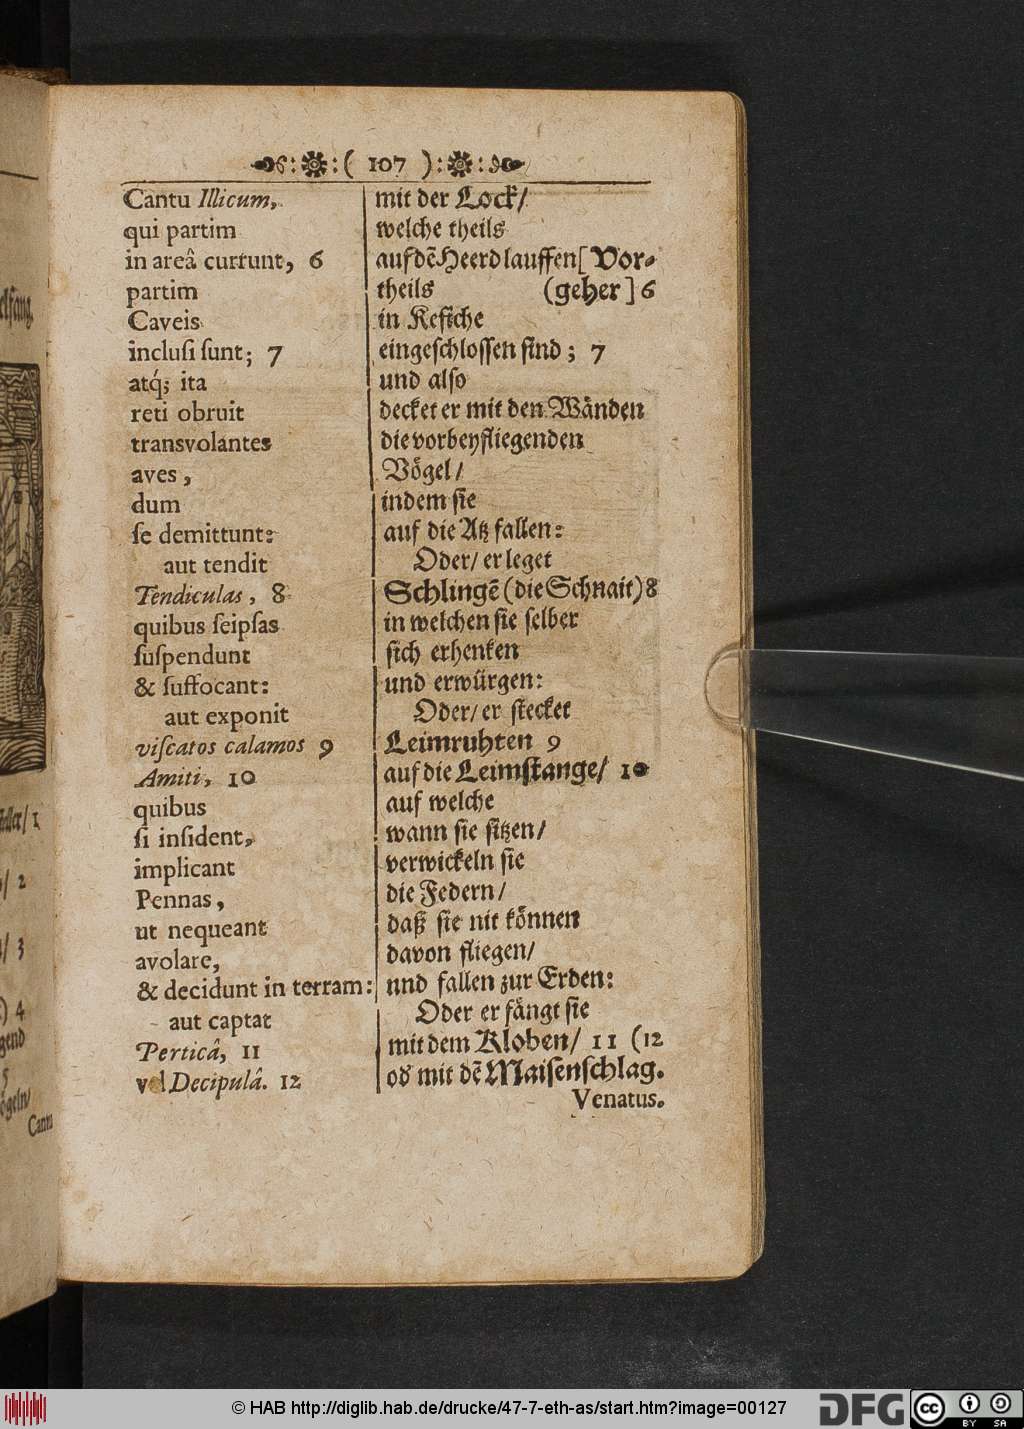 ( 107 )
Cantu Illicum,
qui partim
in areâ currunt, 6
partim
Caveis
inclusi sunt; 7
atq́; ita
reti obruit
transvolantes
aves,
dum
se demittunt:
aut tendit
Tendiculas, 8
quibus seipsas
suspendunt
& suffocant:
aut exponit
viscatos calamos 9
Amiti, 10
quibus
si insident,
implicant
Pennas,
ut nequeant
avolare,
& decidunt in terram:
aut captat
Perticâ, 11
vel Decipulâ. 12
mit der Lock/
welche theils
auf dẽ Heerd lauffen [Vor-
theils (geher] 6
in Kefiche
eingeschlossen sind; 7
und also
decket er mit den Wänden
die vorbeyfliegenden
Vögel/
indem sie
auf die Atz fallen:
Oder/ er leget
Schlingẽ (die Schnait) 8
in welchen sie selber
sich erhenken
und erwürgen:
Oder/ er stecket
Leimruhten 9
auf die Leimstange/ 10
auf welche
wann sie sitzen/
verwickeln sie
die Federn/
daß sie nit können
davon fliegen/
und fallen zur Erden:
Oder er fängt sie
mit dem Kloben/ 11 (12
od' mit dẽ Maisenschlag.
Venatus.
/ 1
/ 2
/ 3
) 4
5
Cantu
© HAB http://diglib.hab.de/drucke/47-7-eth-as/start.htm?image=00127
DFG
cc
BY SA